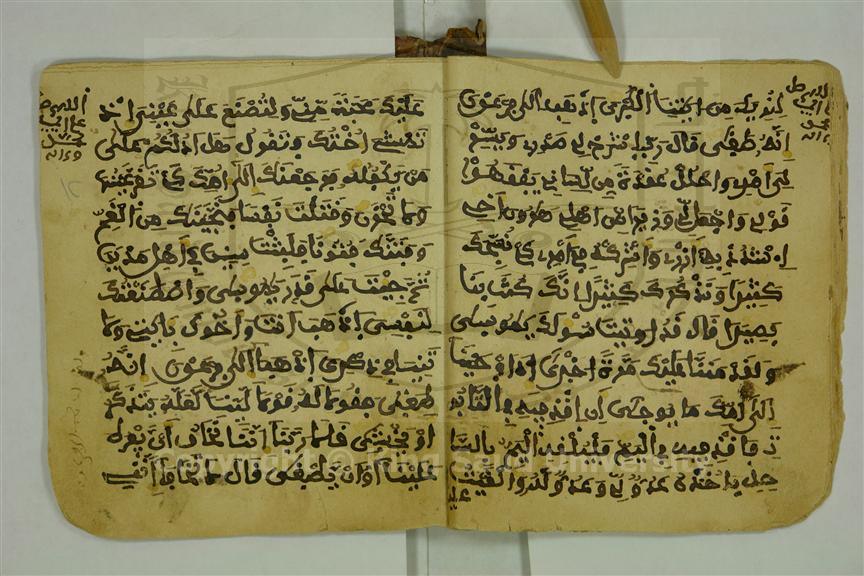 لنريك من ايتنا الكبرى اذهب الى فرعون
انه طغى قال رب اشرح لي صدري ويسر
لي امري واحلل عقدة من لساني يفقهوا
قولي واجعل لي وزيرا من اهلي هرون اخي
اشدد به ازري واشركه في امري كي نسبحك
كثيرا ونذكرك كثيرا انك كنت بنا
بصيرا قال قد اوتيت سولك يموسى
ولقد مننا عليك مرة اخرى اذ اوحينا
الى امك ما يوحى ان اقذفيه في التابو
ت فاقذفيه في اليم فليلقه اليم بالسا
حل ياخذه عدو لي وعدو له والقيت
عليك محبة مني ولتصنع على عيني اذ
تمشي اختك وتقول هل ادلكم على
من يكفله فرجعنك الى امك كي تقر عينها
ولا تحزن وقتلت نفسا فنجينك من الغم
وفتنك فتونا فلبثت سنين في اهل مدين
ثم جيت على قدر يموسى واصطنعتك
لنفسي اذهب انت واخوك بايتي ولا
تنيا في ذكري اذهبا الى فرعون انه
طغى فقولا له قولا لينا لعله يتذكر
او يخشى قالا ربنا اننا نخاف ان يفرط
علينا او ان يطغى قال لا تخافا انني
Copyright © King Saud University